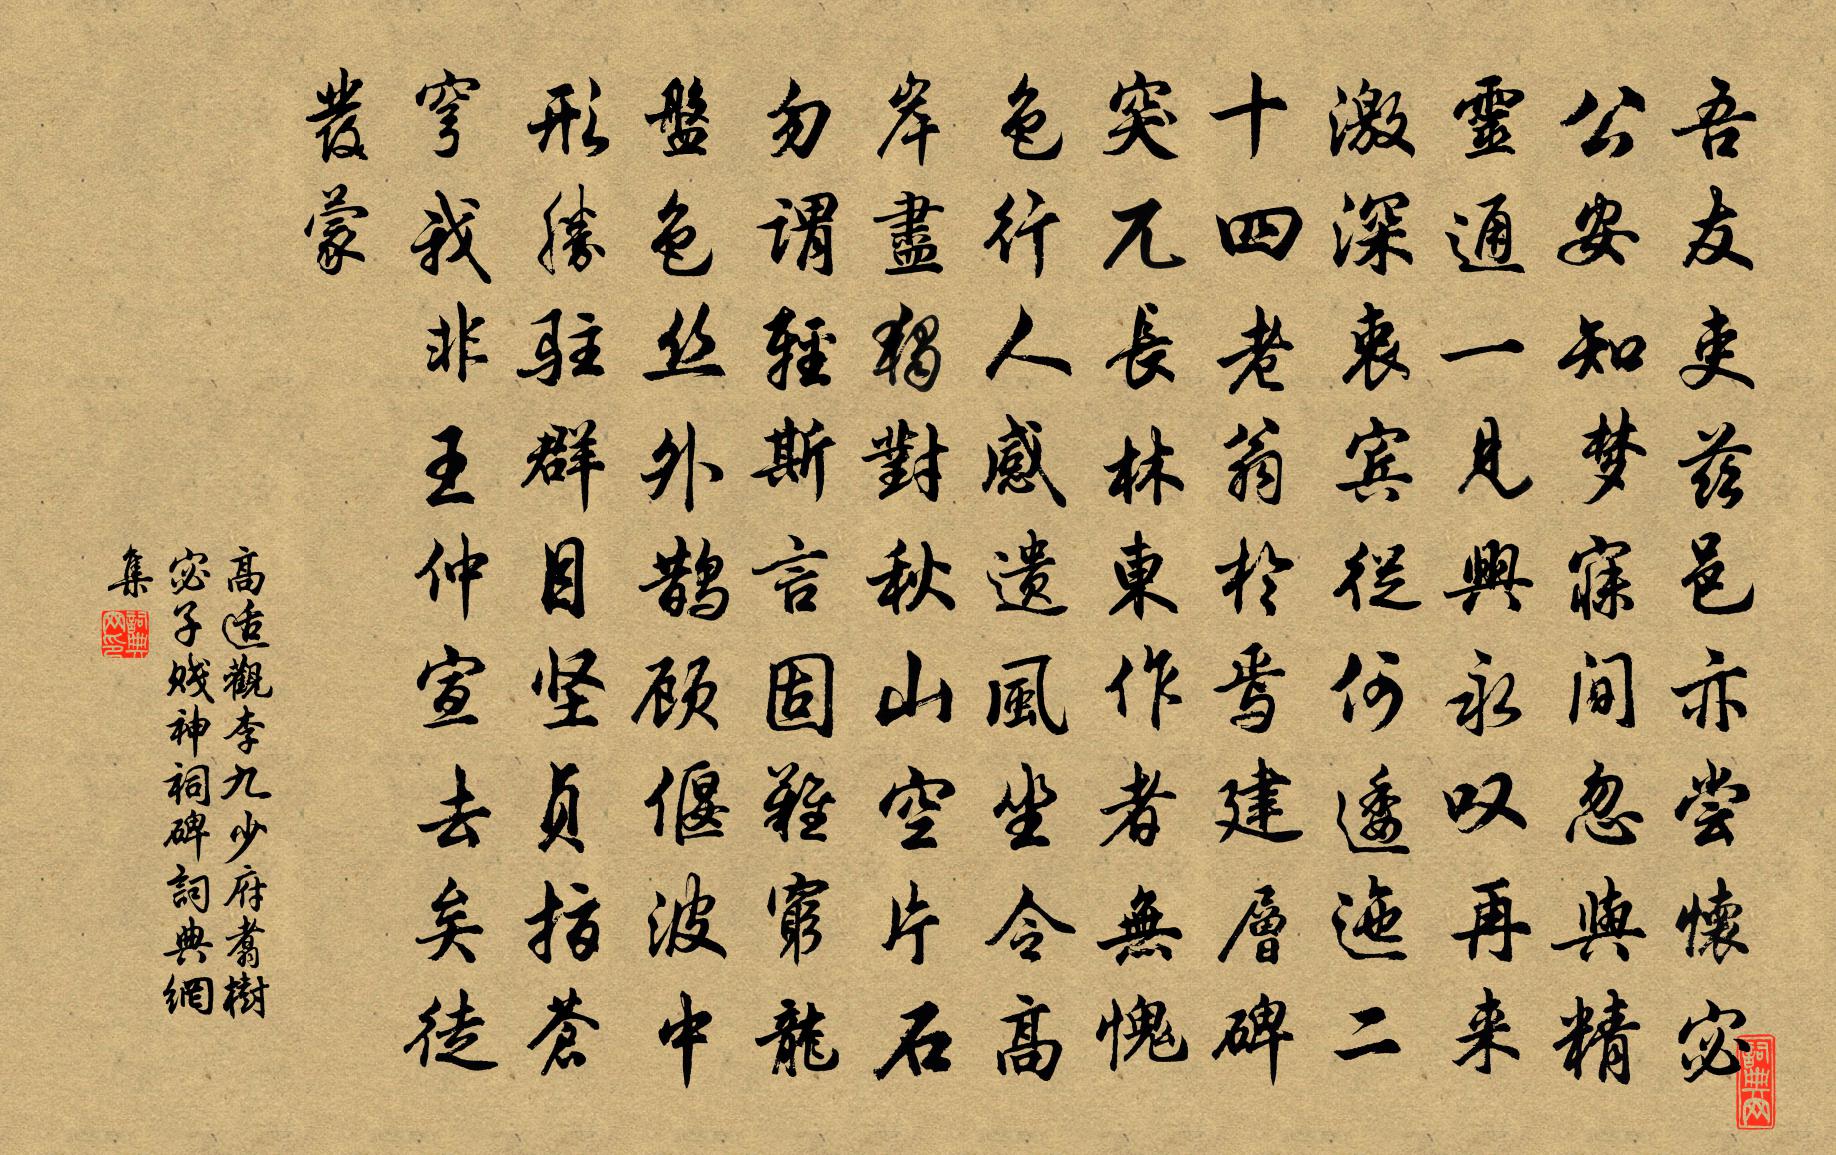 吾友吏茲邑亦尝懷宓
公安知梦寐间忽與精
靈通一見興永叹再来
激深衷宾從何逶迤二
十四老翁於焉建層碑
突兀長林東作者無愧
色行人感遗風坐令高
岸盡獨對秋山空片石
勿谓輕斯言固難窮龍
盤色丝外鹊顾偃波中
形勝駐群目坚貞指蒼
穹我非王仲宣去矣徒
發蒙
高适觀李九少府翥樹
宓子賤神祠碑詞典網
集
詞典网印
詞典网